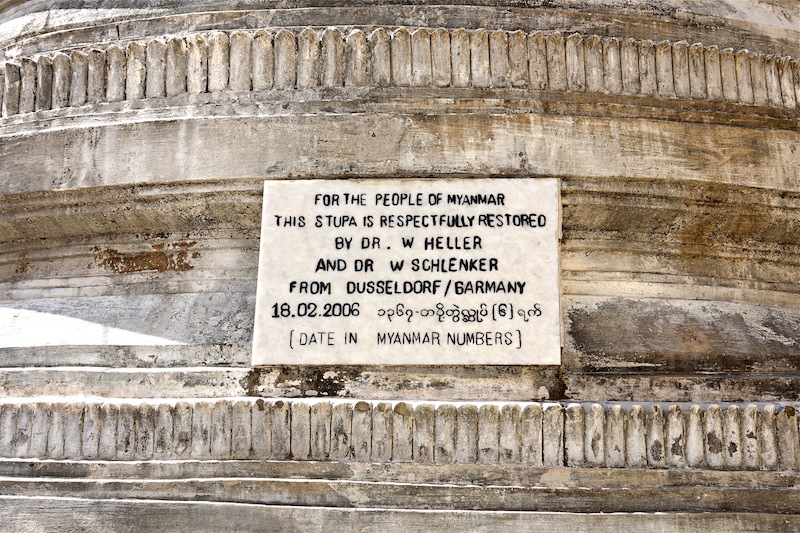 FOR THE PEOPLE OF MYANMAR
THIS STUPA IS RESPECTFULLY RESTORED
BY DR. W HELLER
AND DR W SCHLENKER
FROM DUSSELDORF/GARMANY
18.02.2006 ၁၃၆၇-တပို့တွဲလ္ဆုပ် (၆) ရက်
[DATE IN MYANMAR NUMBERS]